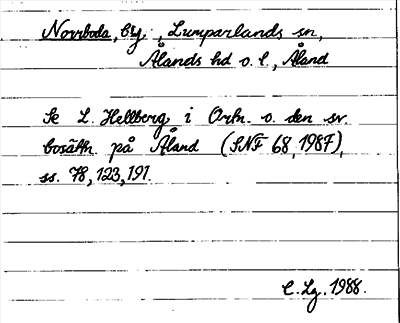 Norrboda, by., Lumparlands sn,
Ålands hd o. l., Åland
Se L. Hellberg i Ortn. o. den sv.
bosättn. på Åland (SNF 68, 1987),
ss. 78, 123, 191.
C. Lg. 1988.